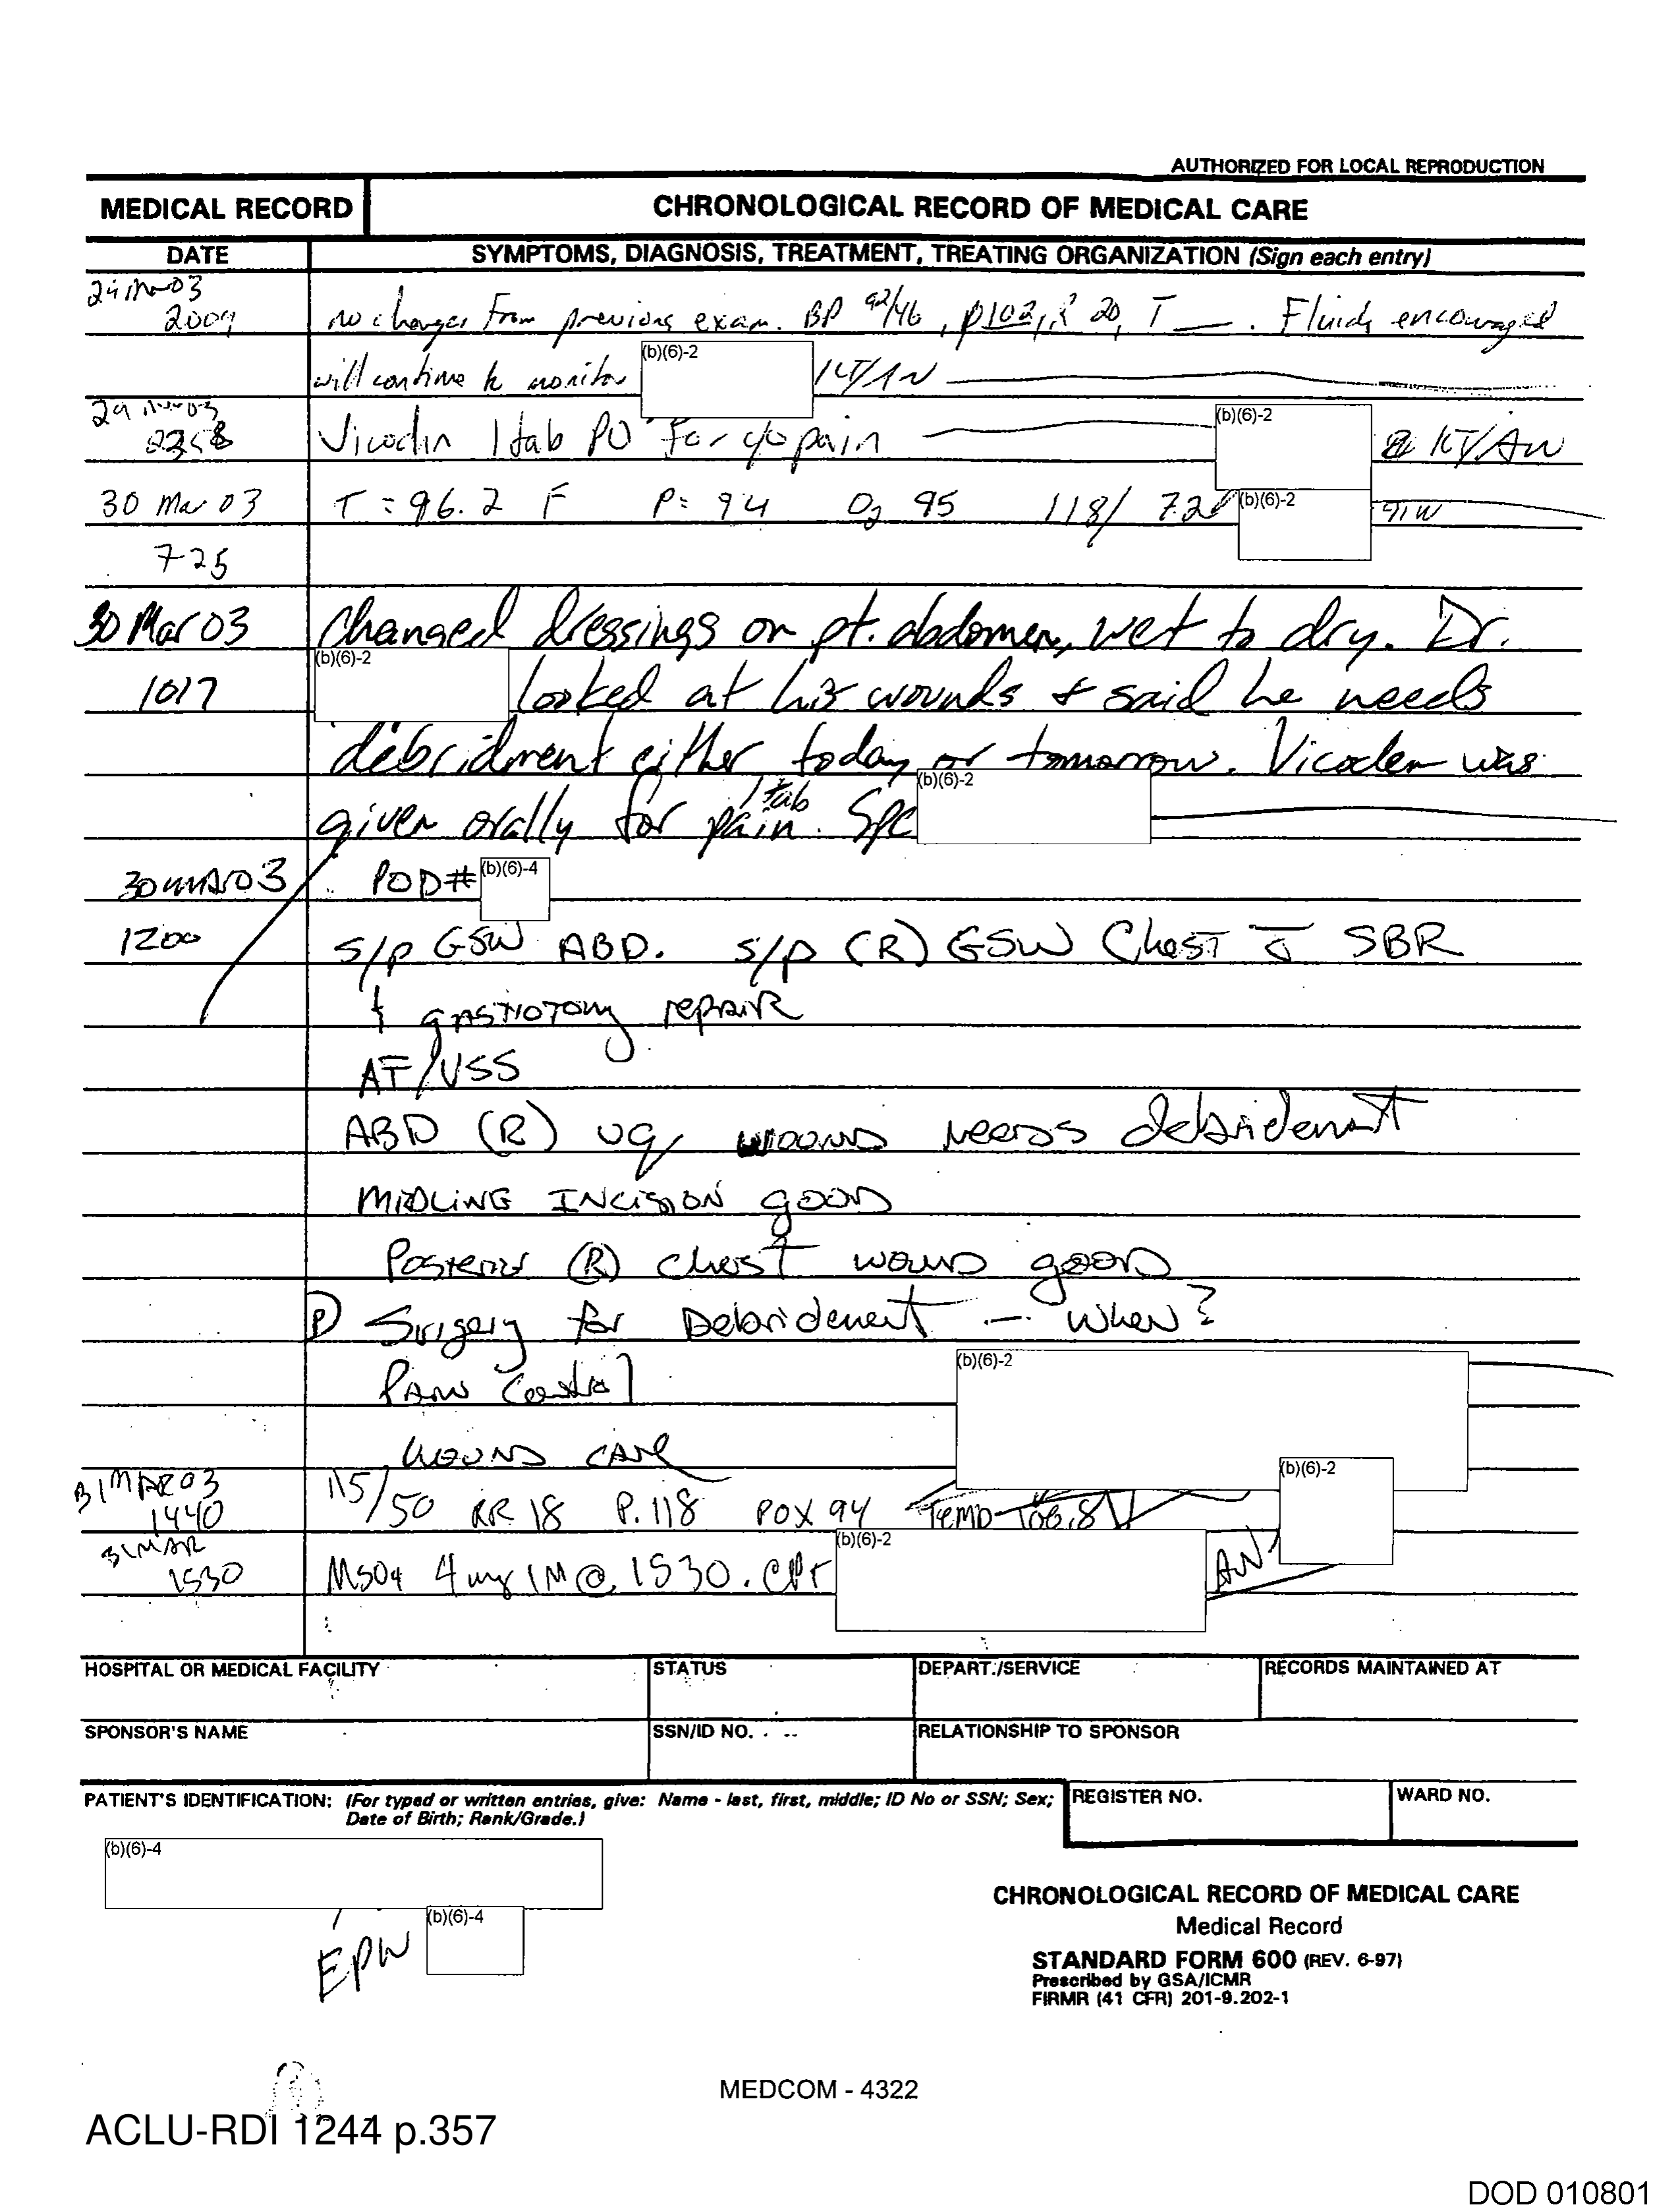 AUTHORIZED FOR LOCAL REPRODUCTION
MEDICAL RECORD CHRONOLOGICAL RECORD OF MEDICAL CARE
DATE SYMPTOMS, DIAGNOSIS, TREATMENT, TREATING ORGANIZATION (Sign each entry)
29 Mar 03
2009 no changes From previous exam. BP 92/46, P 102, R 20, T __. Fluids encouraged
will continue to monitor (b)(6)-2 1LT/AN
29 Mar 03
2258 Vicodin 1 tab PO For c/o pain (b)(6)-2 1LT/AN
30 Mar 03 T = 96.2 F P= 94 O2 95 118/72 (b)(6)-2 91W
725
30 Mar 03 Changed dressings on pt. abdomen, wet to dry. Dr.
1017 (b)(6)-2 looked at his wounds & said he needs
debridment either today or tomorrow. Vicoden was
given orally for pain. 1 tab SPC (b)(6)-2
30 MAR 03 POD# (b)(6)-4
1200 S/P GSW ABD. S/P (R) GSW Chest c̄ SBR
& gastrotomy repair
AF/VSS
ABD (R) UQ wound needs debridement
MIDLINE INCISION good
Posterior (R) chest wound good
(P) Surgery for Debridement — When?
Pain Control (b)(6)-2
WOUND CARE
31 MAR 03
1440 115/50 RR 18 P. 118 POX 94 Temp (b)(6)-2
31 MAR
1530 MSO4 4 mg IM @ 1530. CPT (b)(6)-2 AN
HOSPITAL OR MEDICAL FACILITY STATUS DEPART./SERVICE RECORDS MAINTAINED AT
SPONSOR'S NAME SSN/ID NO. RELATIONSHIP TO SPONSOR
PATIENT'S IDENTIFICATION: (For typed or written entries, give: Name - last, first, middle; ID No or SSN; Sex; REGISTER NO. WARD NO.
Date of Birth; Rank/Grade.)
(b)(6)-4
EPW (b)(6)-4
CHRONOLOGICAL RECORD OF MEDICAL CARE
Medical Record
STANDARD FORM 600 (REV. 6-97)
Prescribed by GSA/ICMR
FIRMR (41 CFR) 201-9.202-1
MEDCOM - 4322
ACLU-RDI 1244 p.357
DOD 010801